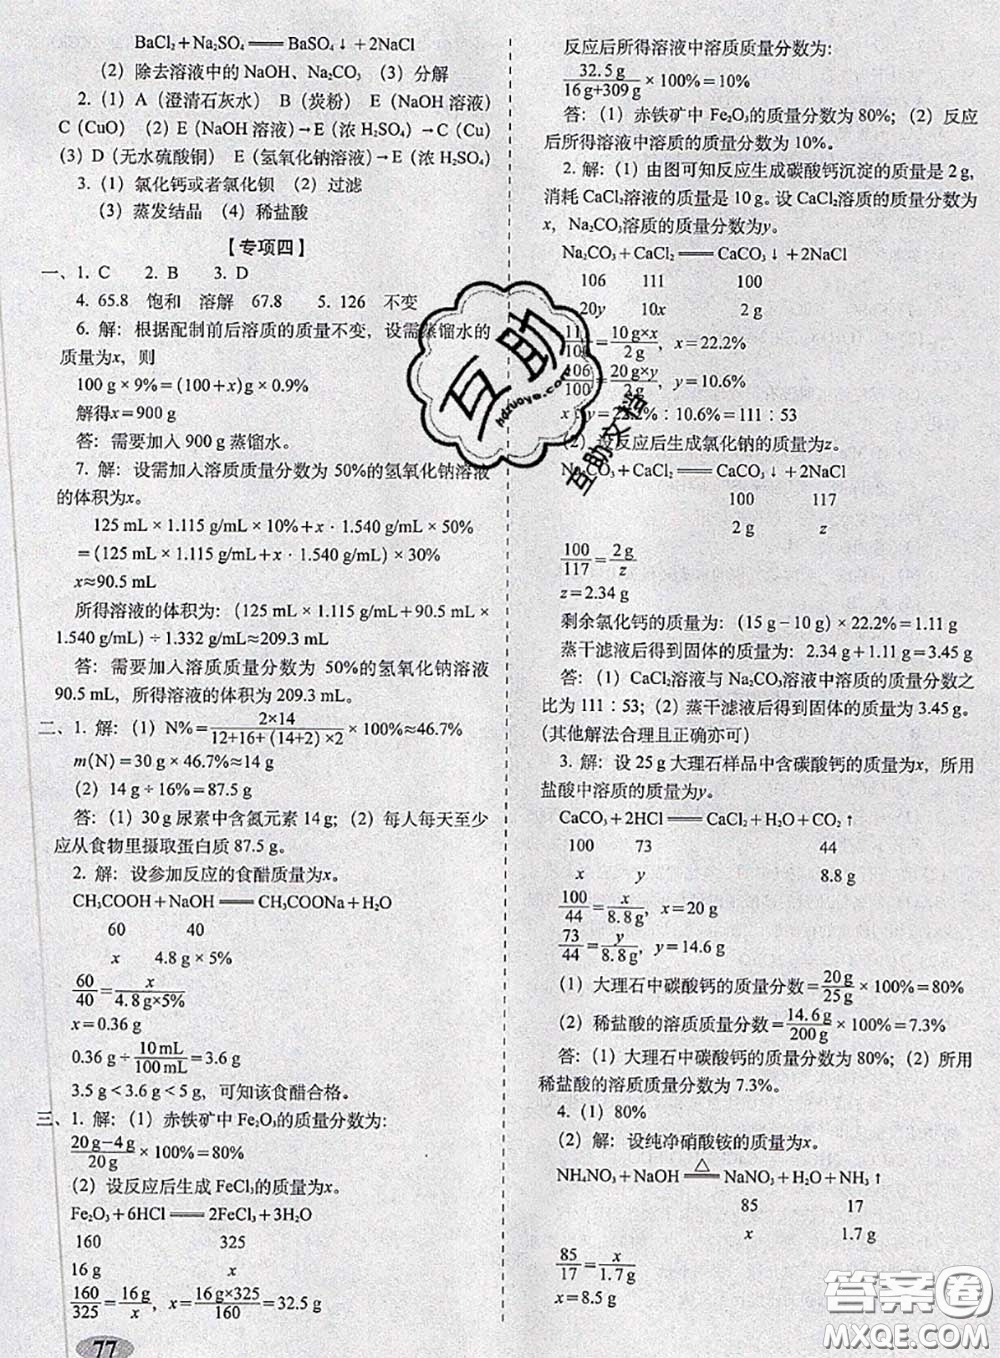 BaCl₂+Na₂SO₄══BaSO₄↓+2NaCl
(2) 除去溶液中的NaOH、Na₂CO₃ (3) 分解
2. (1) A（澄清石灰水） B（炭粉） E（NaOH溶液）
C（CuO） (2) E（NaOH溶液）→E（浓H₂SO₄）→C（Cu）
(3) D（无水硫酸铜） E（氢氧化钠溶液）→E（浓H₂SO₄）
3. (1) 氯化钙或者氯化钡 (2) 过滤
(3) 蒸发结晶 (4) 稀盐酸
【专项四】
一、1. C 2. B 3. D
4. 65.8 饱和 溶解 67.8 5. 126 不变
6. 解：根据配制前后溶质的质量不变，设需蒸馏水的
质量为x，则
100 g×9%=(100+x) g×0.9%
解得x=900 g
答：需要加入900 g蒸馏水。
7. 解：设需加入溶质质量分数为50%的氢氧化钠溶液
的体积为x。
125 mL×1.115 g/mL×10%+x·1.540 g/mL×50%
=(125 mL×1.115 g/mL+x·1.540 g/mL)×30%
x≈90.5 mL
所得溶液的体积为：(125 mL×1.115 g/mL+90.5 mL×
1.540 g/mL)÷1.332 g/mL≈209.3 mL
答：需要加入溶质质量分数为50%的氢氧化钠溶液
90.5 mL，所得溶液的体积为209.3 mL。
二、1. 解：(1) N%=2×14/12+16+(14+2)×2×100%≈46.7%
m(N)=30 g×46.7%≈14 g
(2) 14 g÷16%=87.5 g
答：(1) 30 g尿素中含氮元素14 g；(2) 每人每天至少
应从食物里摄取蛋白质87.5 g。
2. 解：设参加反应的食醋质量为x。
CH₃COOH+NaOH══CH₃COONa+H₂O
60 40
x 4.8 g×5%
60/40=x/4.8 g×5%
x=0.36 g
0.36 g÷10 mL/100 mL=3.6 g
3.5 g<3.6 g<5 g，可知该食醋合格。
三、1. 解：(1) 赤铁矿中Fe₂O₃的质量分数为：
20 g-4 g/20 g×100%=80%
(2) 设反应后生成FeCl₃的质量为x。
Fe₂O₃+6HCl══2FeCl₃+3H₂O
160 325
16 g x
160/325=16 g/x，x=16 g×325/160=32.5 g
77
反应后所得溶液中溶质质量分数为：
32.5 g/16 g+309 g×100%=10%
答：(1) 赤铁矿中Fe₂O₃的质量分数为80%；(2) 反应
后所得溶液中溶质的质量分数为10%。
2. 解：(1) 由图可知反应生成碳酸钙沉淀的质量是2 g，
消耗CaCl₂溶液的质量是10 g。设CaCl₂溶质的质量分数为
x，Na₂CO₃溶质的质量分数为y。
Na₂CO₃+CaCl₂══CaCO₃↓+2NaCl
106 111 100
20y 10x 2 g
100=10 g×x/2 g，x=22.2%
106/100=20 g×y/2 g，y=10.6%
x∶y=22.2%∶10.6%=111∶53
(2) 设反应后生成氯化钠的质量为z。
Na₂CO₃+CaCl₂══CaCO₃↓+2NaCl
100 117
2 g z
100/117=2 g/z
z=2.34 g
剩余氯化钙的质量为：(15 g-10 g)×22.2%=1.11 g
蒸干滤液后得到固体的质量为：2.34 g+1.11 g=3.45 g
答：(1) CaCl₂溶液与Na₂CO₃溶液中溶质的质量分数之
比为111∶53；(2) 蒸干滤液后得到固体的质量为3.45 g。
（其他解法合理且正确亦可）
3. 解：设25 g大理石样品中含碳酸钙的质量为x，所用
盐酸中溶质的质量为y。
CaCO₃+2HCl══CaCl₂+H₂O+CO₂↑
100 73 44
x y 8.8 g
100/44=x/8.8 g，x=20 g
73/44=y/8.8 g，y=14.6 g
(1) 大理石中碳酸钙的质量分数=20 g/25 g×100%=80%
(2) 稀盐酸的溶质质量分数=14.6 g/200 g×100%=7.3%
答：(1) 大理石中碳酸钙的质量分数为80%；(2) 所用
稀盐酸的溶质质量分数为7.3%。
4. (1) 80%
(2) 解：设纯净硝酸铵的质量为x。
NH₄NO₃+NaOH═△═NaNO₃+H₂O+NH₃↑
85 17
x 1.7 g
85/17=x/1.7 g
x=8.5 g
互助
hdzuoye.com
互助文档
答案圈
MXQE.COM